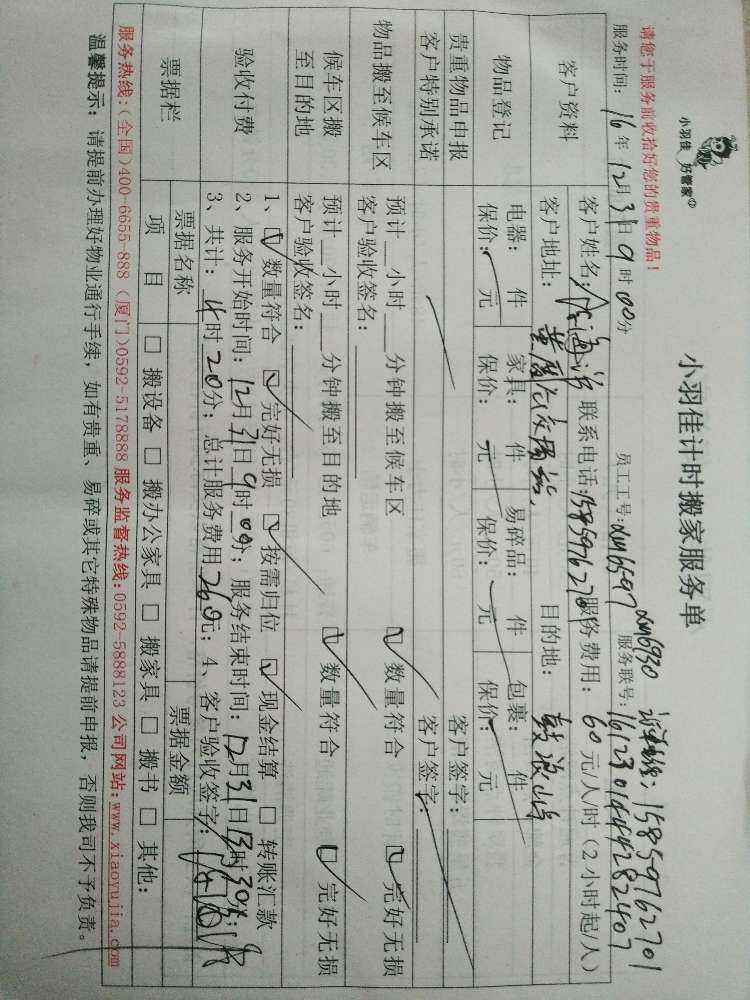 小羽佳 好管家
小羽佳计时搬家服务单
请您于服务前收拾好您的贵重物品！
员工工号：xm6597 xm6930 15859762701
服务时间：16年12月31日9时00分 服务联号：161230144428 2407
客户资料
客户姓名： 联系电话：1585976270 服务费用：60元/人/时（2小时起/人）
客户地址： 目的地：鼓浪屿
物品登记
电器： 件 家具： 件 易碎品： 件 包裹： 件
保价： 元 保价： 元 保价： 元 保价： 元
贵重物品申报 客户签字：
客户特别承诺 客户签字：
物品搬至候车区
预计 小时 分钟搬至候车区 数量符合 完好无损
客户验收签名：
候车区搬至目的地
预计 小时 分钟搬至目的地 数量符合 完好无损
客户验收签名：
验收付费
1、 数量符合 完好无损 按需归位 现金结算 转账汇款
2、服务开始时间：12月31日9时00分；服务结束时间：12月31日13时30分；
3、共计：4时20分；总计服务费用260元；4、客户验收签字：
票据栏
票据名称 票据金额
项目 搬设备 搬办公家具 搬家具 搬书 其他：
服务热线：(全国)400-6655-888 (厦门)0592-5178888 服务监督热线：0592-5888123 公司网站：www.xiaoyujia.com
温馨提示：请提前办理好物业通行手续，如有贵重、易碎或其它特殊物品请提前申报，否则我司不予负责。